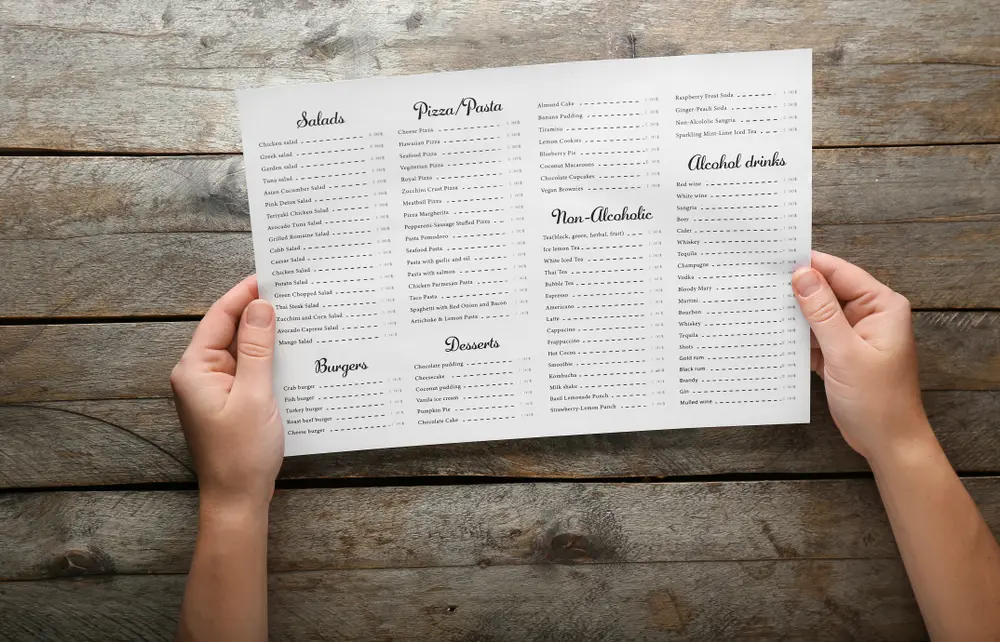 Salads
Chicken salad
Greek salad
Garden salad
Tuna salad
Asian Cucumber Salad
Pink Detox Salad
Teriyaki Chicken Salad
Avocado Tuna Salad
Grilled Romaine Salad
Cobb Salad
Caesar Salad
Chicken Salad
Potato Salad
Green Chopped Salad
Thai Steak Salad
Zucchini and Corn Salad
Avocado Caprese Salad
Mango Salad
Burgers
Crab burger
Fish burger
Turkey burger
Roast beef burger
Cheese burger
Pizza/Pasta
Cheese Pizza
Hawaiian Pizza
Seafood Pizza
Vegetarian Pizza
Royal Pizza
Zucchini Crust Pizza
Meatball Pizza
Pizza Margherita
Pepperoni-Sausage Stuffed Pizza
Pasta Pomodoro
Seafood Pasta
Pasta with garlic and oil
Pasta with salmon
Chicken Parmesan Pasta
Taco Pasta
Spaghetti with Red Onion and Bacon
Artichoke & Lemon Pasta
Desserts
Chocolate pudding
Cheesecake
Coconut pudding
Vanila ice cream
Pumpkin Pie
Chocolate Cake
Almond Cake
Banana Pudding
Tiramisu
Lemon Cookies
Blueberry Pie
Coconut Macaroons
Chocolate Cupcakes
Vegan Brownies
Non-Alcoholic
Tea(black, green, herbal, fruit)
Ice lemon Tea
White Iced Tea
Thai Tea
Bubble Tea
Espresso
Americano
Latte
Cappucino
Frappuccino
Hot Cocoa
Smoothie
Kombucha
Milk shake
Basil Lemonade Punch
Strawberry-Lemon Punch
Raspberry Frost Soda
Ginger-Peach Soda
Non-Alcololic Sangria
Sparkling Mint-Lime Iced Tea
Alcohol drinks
Red wine
White wine
Sangria
Beer
Cider
Whiskey
Tequila
Champagne
Vodka
Bloody Mary
Martini
Bourbon
Whiskey
Tequila
Shots
Gold rum
Black rum
Brandy
Gin
Mulled wine